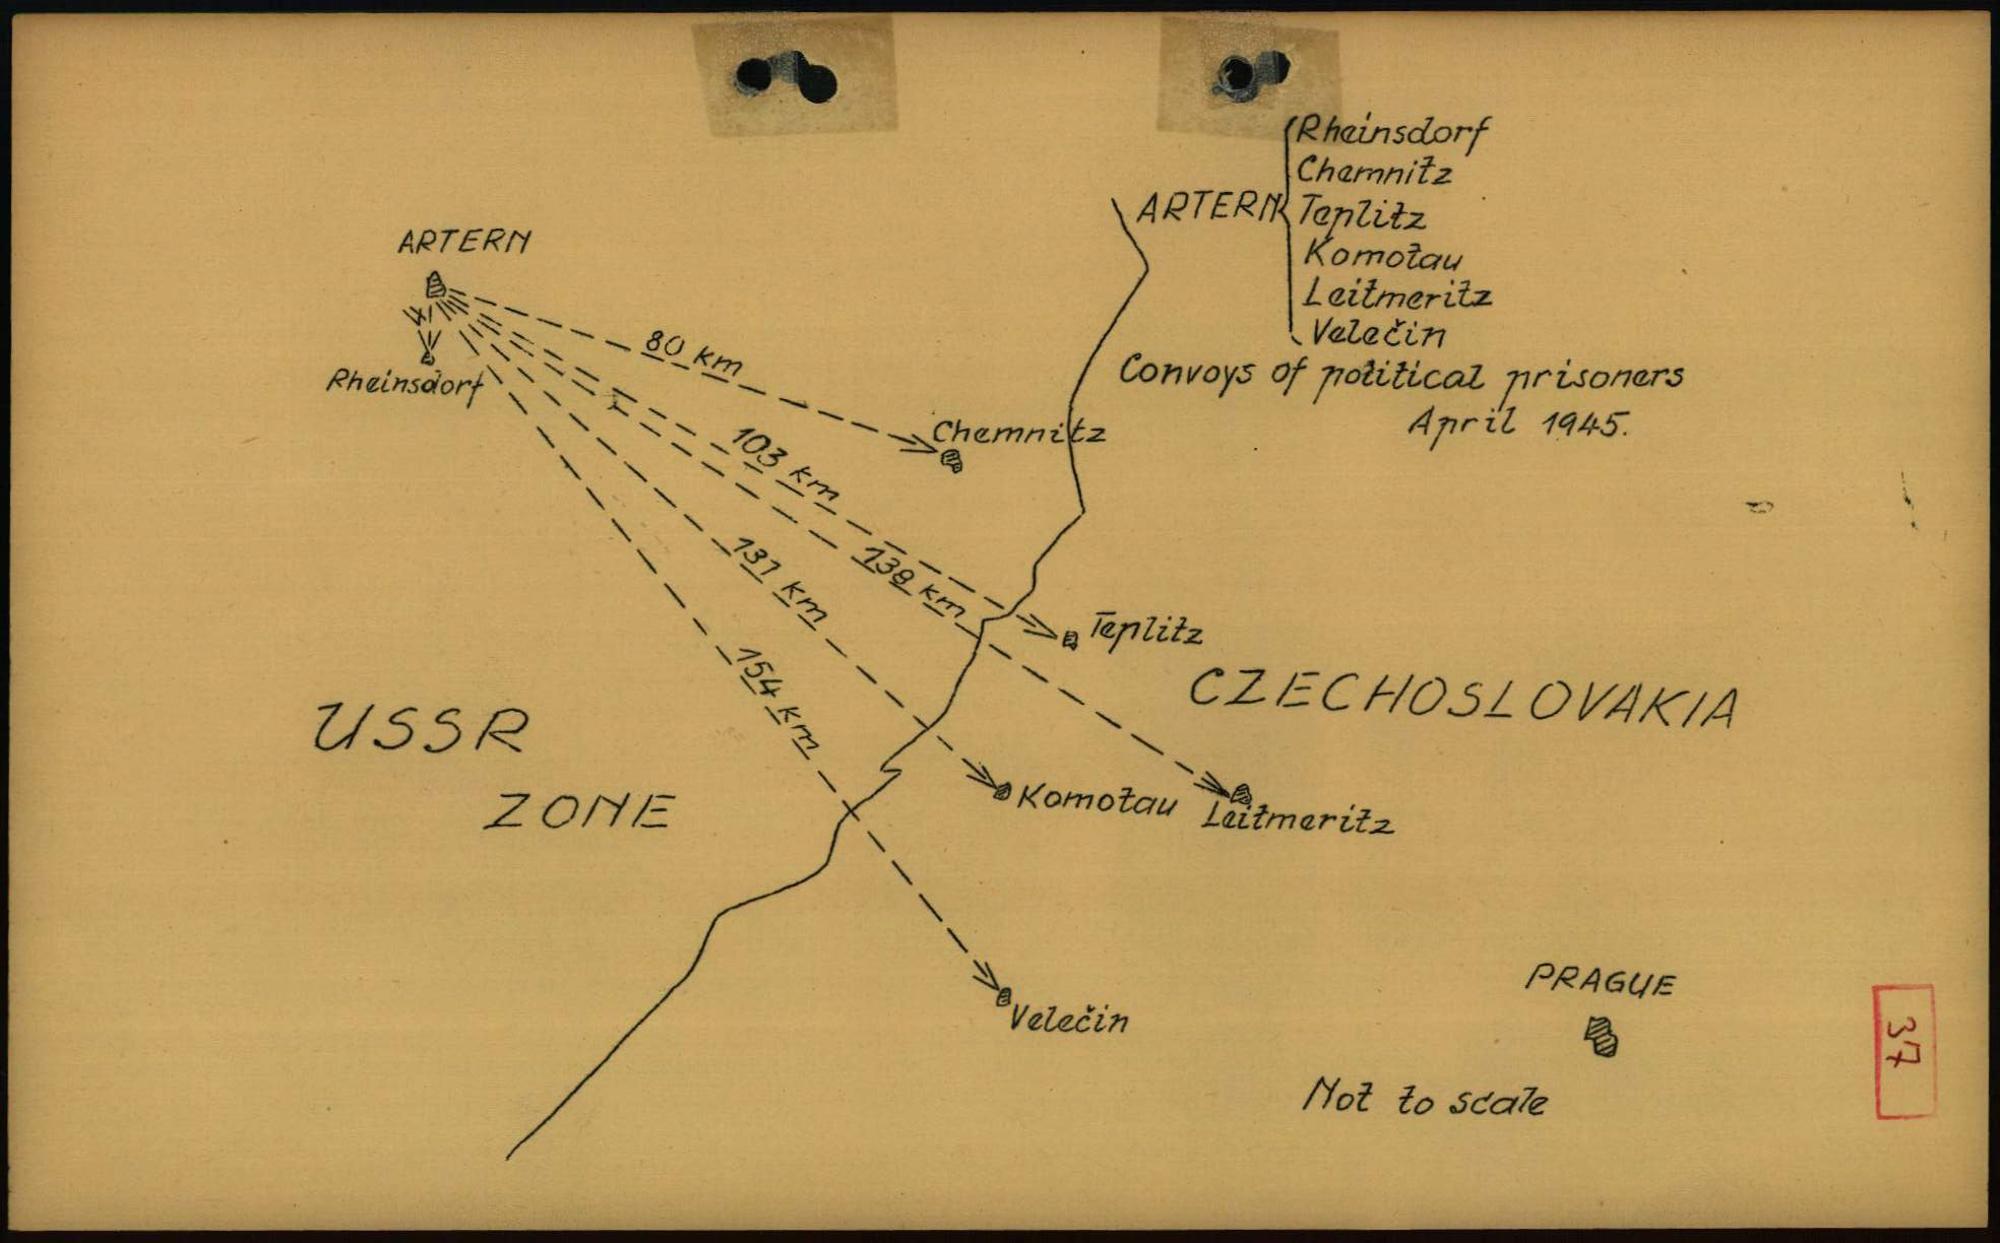 Rheinsdorf
Chemnitz
ARTERN Teplitz
Komotau
Leitmeritz
Velečin
Convoys of political prisoners
April 1945.
ARTERN
Rheinsdorf
80 km
Chemnitz
103 km
138 km
131 km
154 km
Teplitz
CZECHOSLOVAKIA
USSR
ZONE
Komotau
Leitmeritz
Velečin
PRAGUE
Not to scale
37